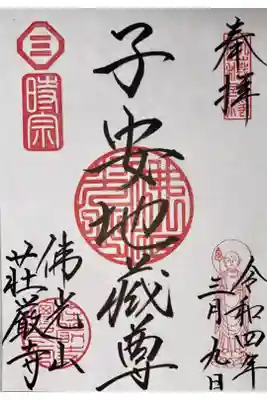 奉拝
令和四年
三月九日
子安地蔵尊
佛光山
荘厳寺
三
時宗